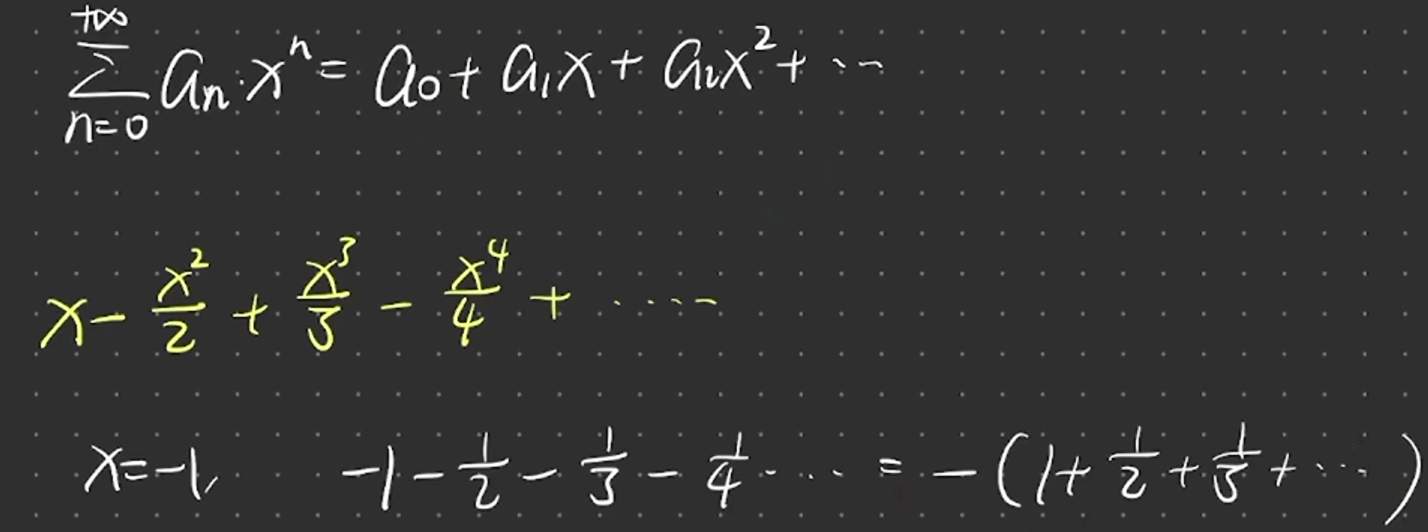 $\sum_{n=0}^{+\infty} a_n \cdot x^n = a_0 + a_1 x + a_2 x^2 + \cdots$
$x - \frac{x^2}{2} + \frac{x^3}{3} - \frac{x^4}{4} + \cdots\cdots$
$x = -1, \quad -1 - \frac{1}{2} - \frac{1}{3} - \frac{1}{4} \cdots\cdots = -\left(1 + \frac{1}{2} + \frac{1}{3} + \cdots\right)$